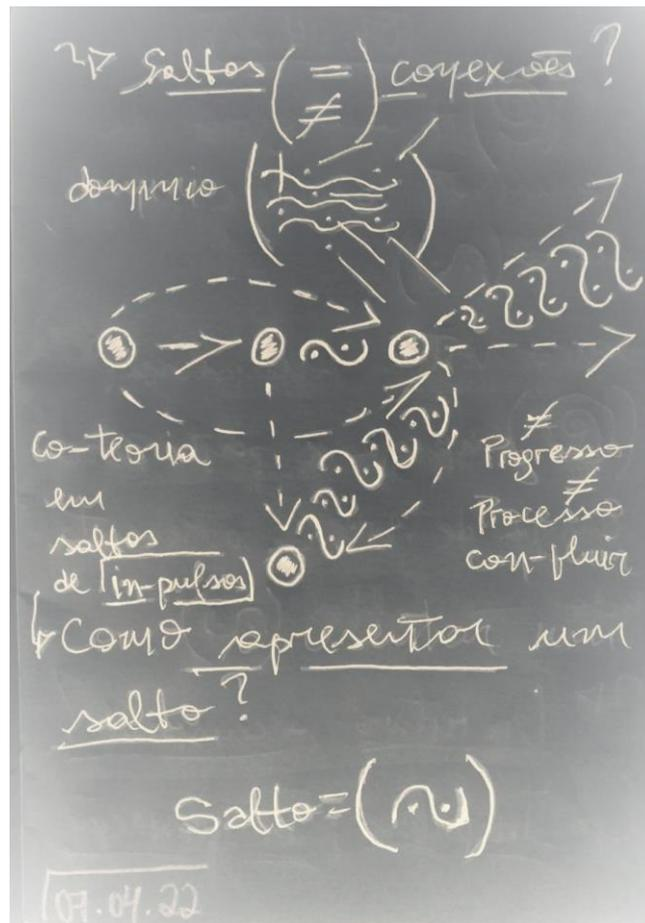 Saltos (= ≠) conexões?
domínio
co-teoria
em
saltos
de in-pulsos
≠
Progresso
≠
Processo
con-fluir
Como apresentar um
salto?
Salto = (∻)
07.04.22